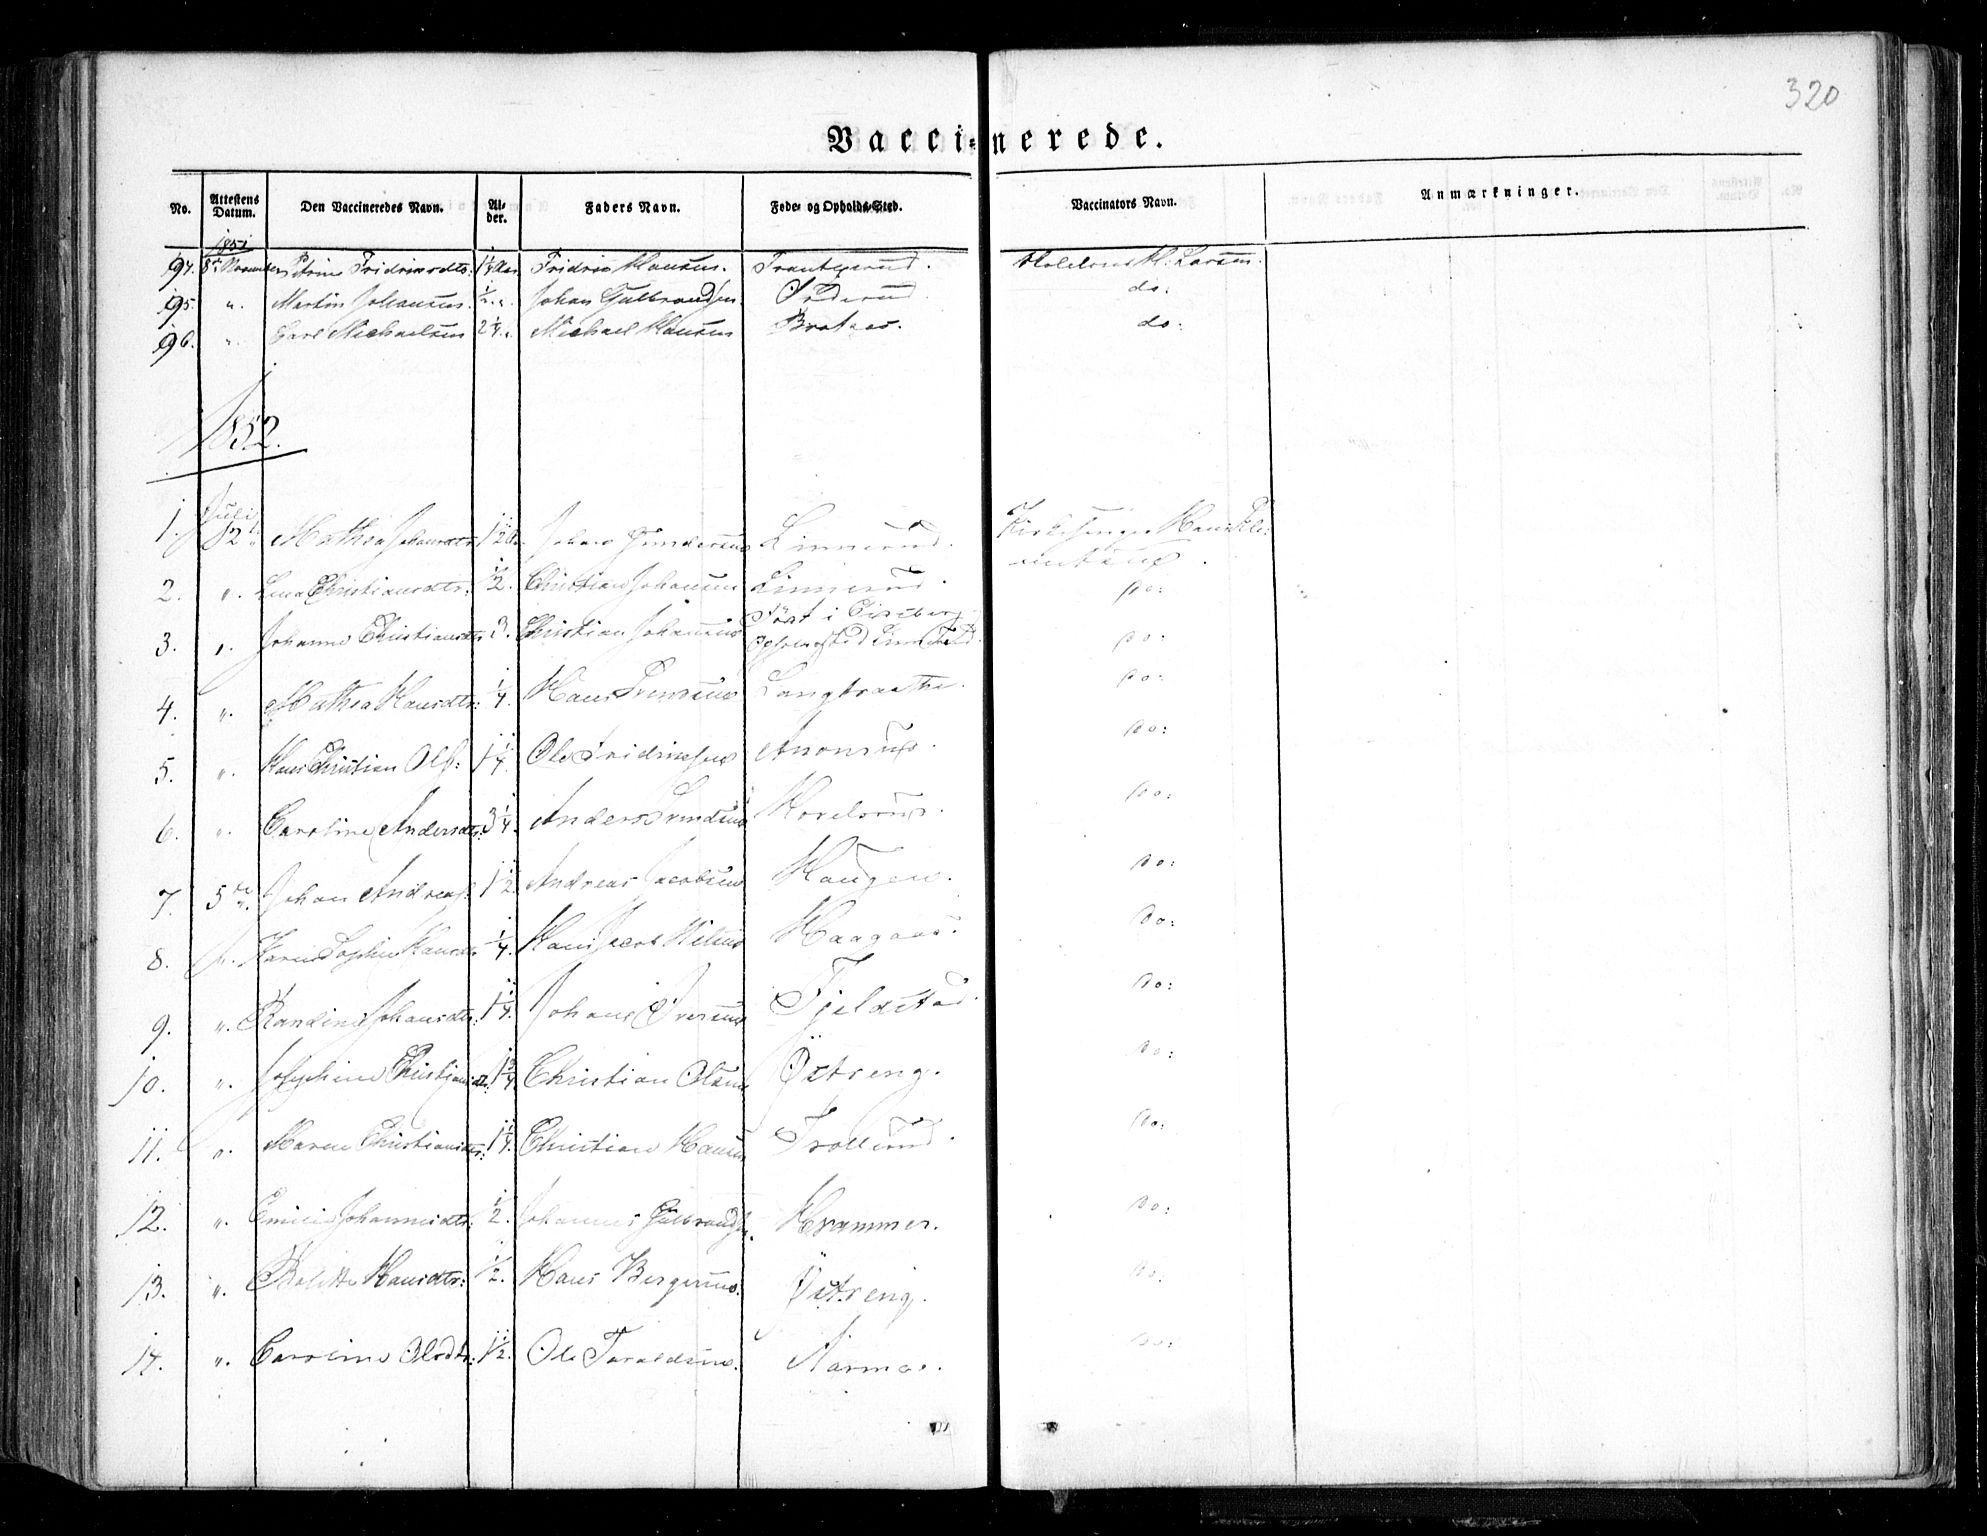 320
Vaccinerede.
No. Attestens Datum. Den Vaccineredes Navn. Al-der. Faders Navn. Føde- og Opholds-Sted. Vaccinators Navn. Anmærkninger.
1851
94. 8de November Fridrichsdtr: Hansen. Larsen.
95. ". Martin Johansen 1/2 ". Johan Gulbrandsen do:
96. ". Carl Michaelsen 2 1/4. Michael Hansen Bråtaas. do:
1852.
Juli
1. 2. Mathea Johansdtr: Johan Gundersen Linnerud. Kirkesanger Hans Kle-
mentsen.
2. ". Lina Christiansdtr: 1/2. Christian Johansen Linnerud. Do:
3. ". Johanne Christiansdtr 3. Christian Johansen Født i Do:
4. ". Mathea Hansdtr: 1/4. Hans Svensen Langbraathe. Do:
5. ". Hans Christian Ols: 1 1/4. Ole Fridrichsen Do:
6. ". Caroline Andersdtr: 3 1/4. Anders Svendsen Do:
7. 5te Johan Andreas: 1 1/2 Andreas Jacobsen Haugen. Do:
8. ". Karen Sophie Hansdtr 1/4. Hans Jacob Nilsen Haagaas. Do:
9. ". Randine Johansdtr: 1 1/4. Johan Iversen Fjeldstad. Do:
10. ". Josephine Christiansdtr: 1 3/4. Christian Olsen Östreng. Do:
11. ". Maren Christiansdtr: 1 1/4. Christian Hansen Trollerud. Do:
12. ". Emilie Johannesdtr: 1/2. Johannes Gulbrandsen. Krammer. Do:
13. ". Bolette Hansdtr: 1/2. Hans Bergersen. Östreng. Do:
14. ". Caroline Olsdtr: 1 1/2. Ole Taraldsen. Aarmoe. Do: